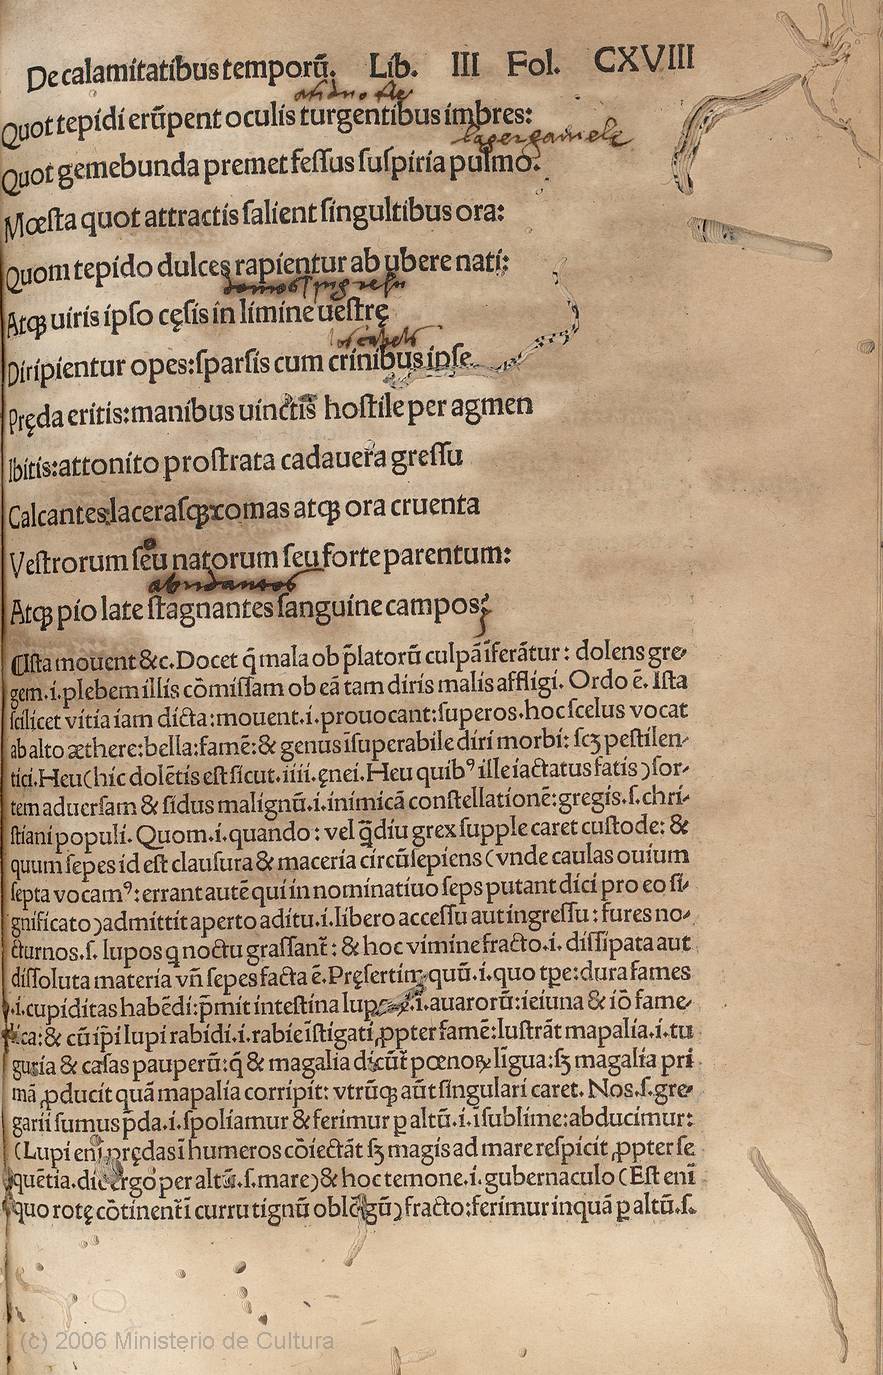 De calamitatibus temporū. Lib. III Fol. CXVIII
Quot tepidi erūpent oculis turgentibus imbres:
Quot gemebunda premet fessus suspiria pulmo:
Mœsta quot attractis salient singultibus ora:
Quom tepido dulces rapientur ab ubere nati:
Atqꝫ uiris ipso cęsis in limine uestrę
Diripientur opes: sparsis cum crinibus ipse
Pręda eritis: manibus uinctis hostile per agmen
Ibitis: attonito prostrata cadauera gressu
Calcantes: lacerasqꝫ comas atqꝫ ora cruenta
Vestrorum seu natorum seu forte parentum:
abundantes
Atqꝫ pio late stagnantes sanguine campos:
⁋Ista mouent &c. Docet q̄ mala ob p̄latorū culpā īferātur: dolens gre-
gem .i. plebem illis cōmissam ob eā tam diris malis affligi. Ordo ē. Ista
scilicet vitia iam dicta: mouent .i. prouocant: superos. hoc scelus vocat
ab alto æthere: bella: famē: & genus īsuperabile diri morbi: scꝫ pestilen-
tici. Heu (hic dolētis est sicut .iiii. ęnei. Heu quibꝰ ille iactatus fatis) sor-
tem aduersam & sidus malignū .i. inimicā constellationē: gregis .s. chri-
stiani populi. Quom .i. quando: vel q̄diu grex supple caret custode: &
quum sepes id est clausura & maceria circūsepiens (vnde caulas ouium
septa vocamꝰ: errant autē qui in nominatiuo seps putant dici pro eo si-
gnificato) admittit aperto aditu .i. libero accessu aut ingressu: fures no-
cturnos .s. lupos q noctu grassant̄: & hoc vimine fracto .i. dissipata aut
dissoluta materia vn̄ sepes facta ē. Pręsertim quū .i. quo tp̄e: dura fames
.i. cupiditas habēdi: p̄mit intestina .i. auarorū: ieiuna & iō fame-
ica: & cū ip̄i lupi rabidi .i. rabie īstigati ꝓpter famē: lustrāt mapalia .i. tu
guria & casas pauperū: q̄ & magalia dicūt̄ pœnoꝝ ligua: sꝫ magalia pri
mā ꝓducit quā mapalia corripit: vtrūqꝫ aūt singulari caret. Nos .s. gre-
garii sumus p̄da .i. spoliamur & ferimur ꝑ altū .i. ī sublime: abducimur:
(Lupi enī prędas ī humeros cōiectāt sꝫ magis ad mare respicit ꝓpter se
quētia. dic ergo per altū .s. mare) & hoc temone .i. gubernaculo (Est enī
quo rotę cōtinent̄ ī curru tignū oblōgū) fracto: ferimur inquā ꝑ altū .s.
(c) 2006 Ministerio de Cultura